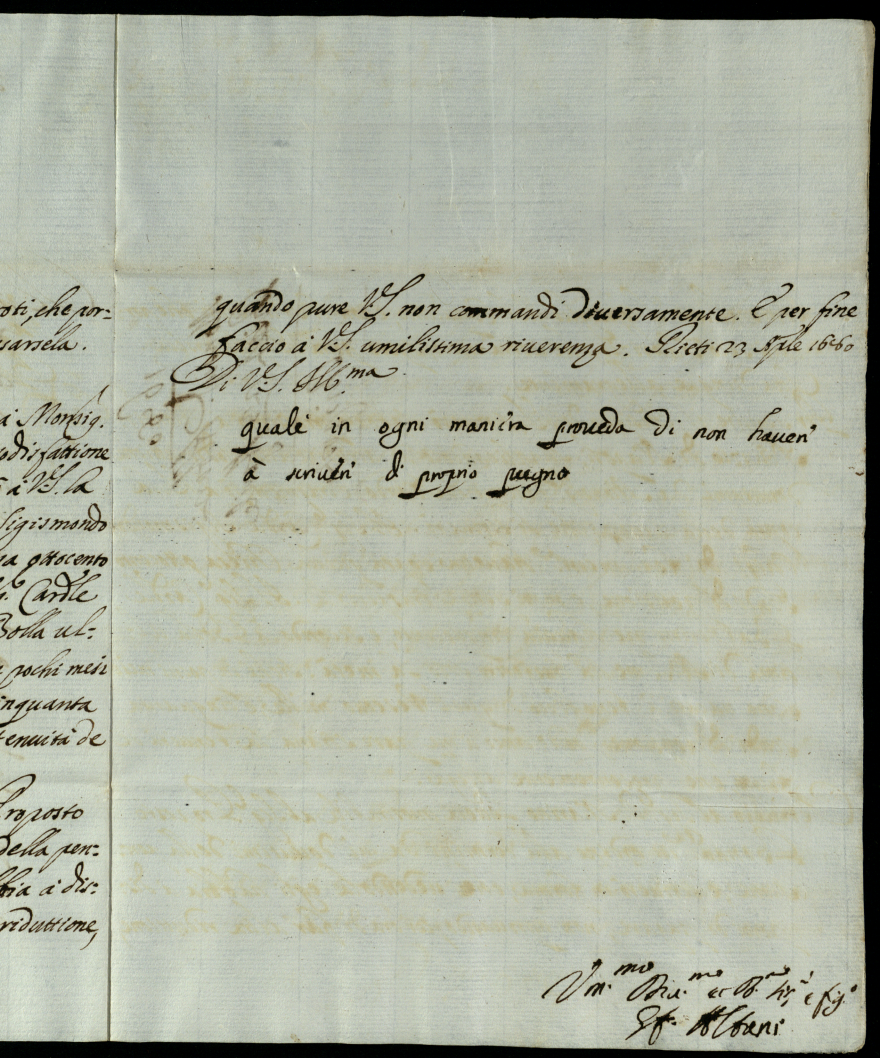 oti, che por=
sarsela.
a Monsig.
odisfattione
à V.S. la
Sigismondo
a ottocento
Cardle
Bolla ul=
pochi mesi
inquanta
tenuità de
Proposto
della pen=
bia à dis=
riduttione,
quando pure V.S. non commandi diversamente. E per fine
faccio à V.S. umilissima riverenza. 23 Aple 1660
Di V.S. Illma
quale in ogni maniera proveda di non haveri
à scriveri di proprio pugno
Um.mo Div.mo et
Albani